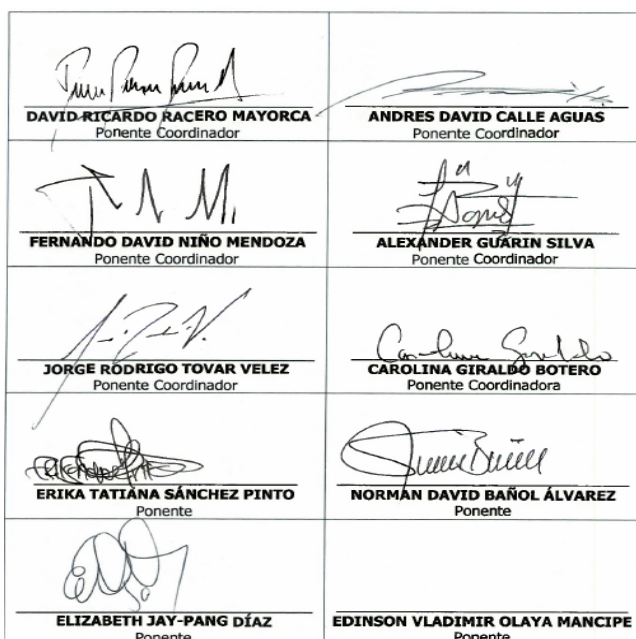 DAVID RICARDO RACERO MAYORCA
Ponente Coordinador
ANDRES DAVID CALLE AGUAS
Ponente Coordinador
FERNANDO DAVID NIÑO MENDOZA
Ponente Coordinador
ALEXANDER GUARIN SILVA
Ponente Coordinador
JORGE RODRIGO TOVAR VELEZ
Ponente Coordinador
CAROLINA GIRALDO BOTERO
Ponente Coordinadora
ERIKA TATIANA SÁNCHEZ PINTO
Ponente
NORMAN DAVID BAÑOL ÁLVAREZ
Ponente
ELIZABETH JAY-PANG DÍAZ
Ponente
EDINSON VLADIMIR OLAYA MANCIPE
Ponente